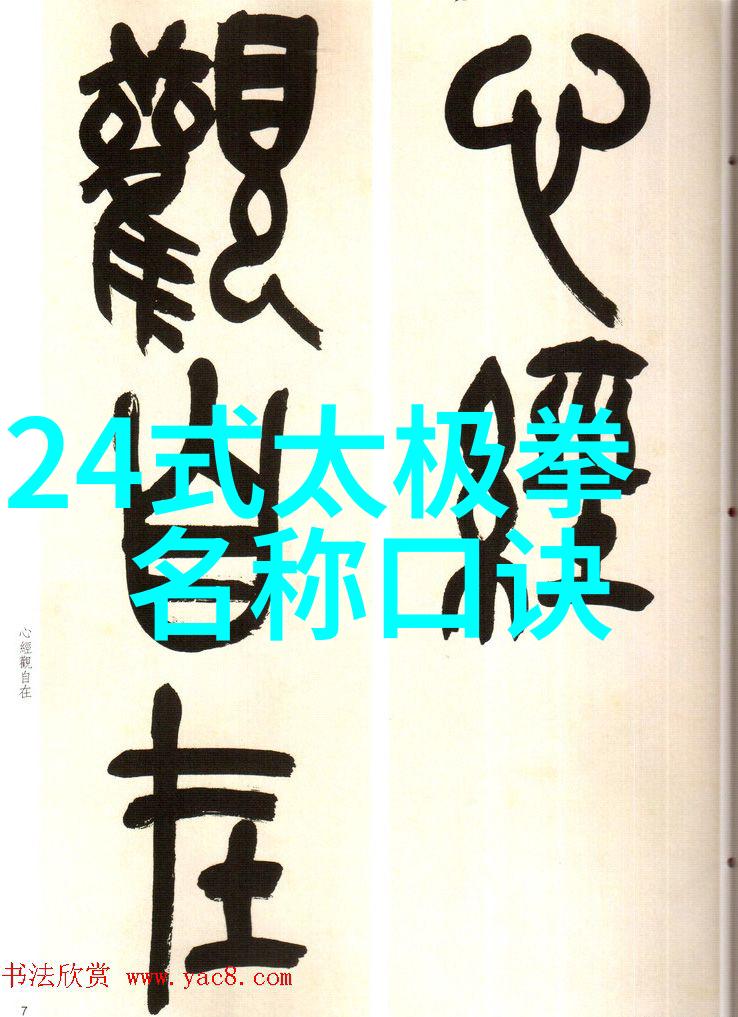 心經
觀自在
24式太极拳
名称口诀
心經觀自在
书法欣赏 www.yac8.com
7